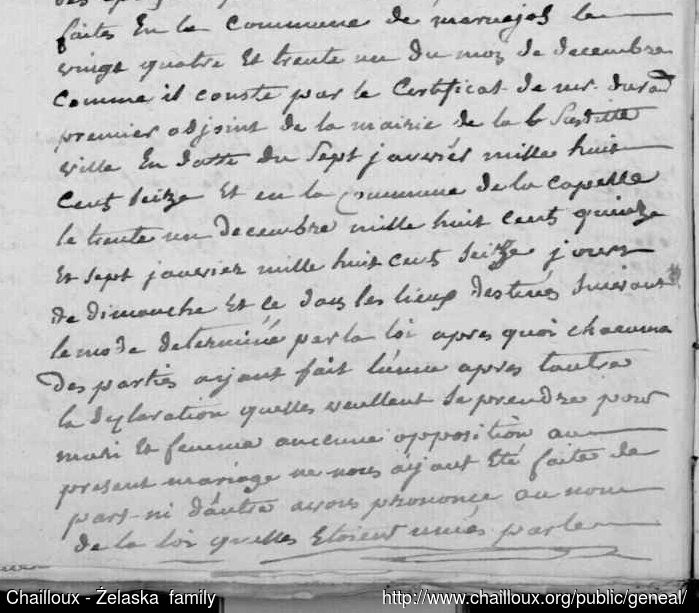 faites En la Commune de maruejols le
vingt quatre Et trente un du mois de decembre
Comme il conste par le Certificat de mr. durand
premier adjoint de la mairie de la
ville En datte du Sept janvier mille huit
Cent Seize Et en la Commune de la Capelle
le trente un decembre mille huit cent quinze
Et Sept janvier mille huit Cent Seize jours
de dimanche Et ce dans les lieux destinés Suivant
le mode determiné par la loi apres quoi chacune
Des parties ayant fait l'une apres l'autre
la declaration quelles veullent Se prendre pour
mari Et femme aucune opposition au
present mariage ne nous ayant Eté faite de
part ni d'autre avons prononcé au nom
de la loi quelles Etoient unies par le
Chailloux - Żelaska family
http://www.chailloux.org/public/geneal/